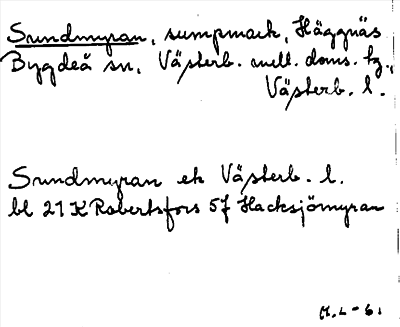 Srundmyran, sumpmark, Häggnäs
Bygdeå sn, Västerb. mell. doms. tg.,
Västerb. l.
Srundmyran ek Västerb. l.
bl 21 K Robertsfors 5f Hacksjömyran
M. L-g.